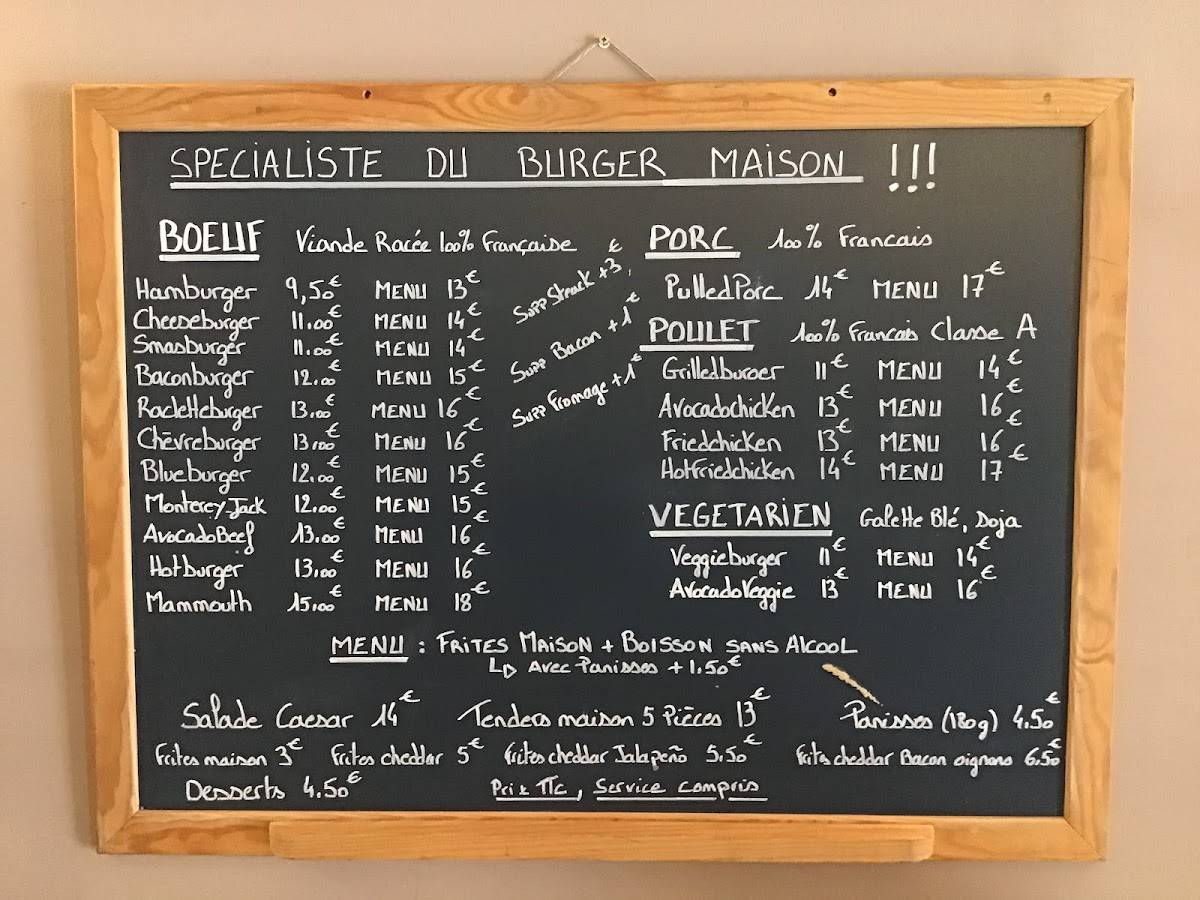 SPECIALISTE DU BURGER MAISON !!!
BOEUF Viande Racée 100% Française
Hamburger 9,50€ MENU 13€
Cheeseburger 11.00€ MENU 14€
Smasburger 11.00€ MENU 14€
Baconburger 12.00€ MENU 15€
Racletteburger 13.00€ MENU 16€
Chèvreburger 13,00€ MENU 16€
Blueburger 12.00€ MENU 15€
Monterey Jack 12.00€ MENU 15€
AvocadoBeef 13.00€ MENU 16€
Hotburger 13,00€ MENU 16€
Mammouth 15,00€ MENU 18€
Supp Steack +3,€
Supp Bacon +1€
Supp Fromage +1€
PORC 100% Francais
PulledPorc 14€ MENU 17€
POULET 100% Francais Classe A
Grilledburger 11€ MENU 14€
Avocadochicken 13€ MENU 16€
Friedchicken 13€ MENU 16€
Hotfriedchicken 14€ MENU 17€
VEGETARIEN Galette Blé, Doja
Veggieburger 11€ MENU 14€
AvocadoVeggie 13€ MENU 16€
MENU : FRITES MAISON + BOISSON SANS ALCOOL
↳ AVEC PANISSES + 1.50€
Salade Caesar 14€ Tenders maison 5 Pièces 13€ Panisses (180g) 4.50€
Frites maison 3€ Frites cheddar 5€ Frites cheddar Jalapeño 5.50€ Frites cheddar Bacon oignons 6.50€
Desserts 4.50€ Prix TTC, Service compris